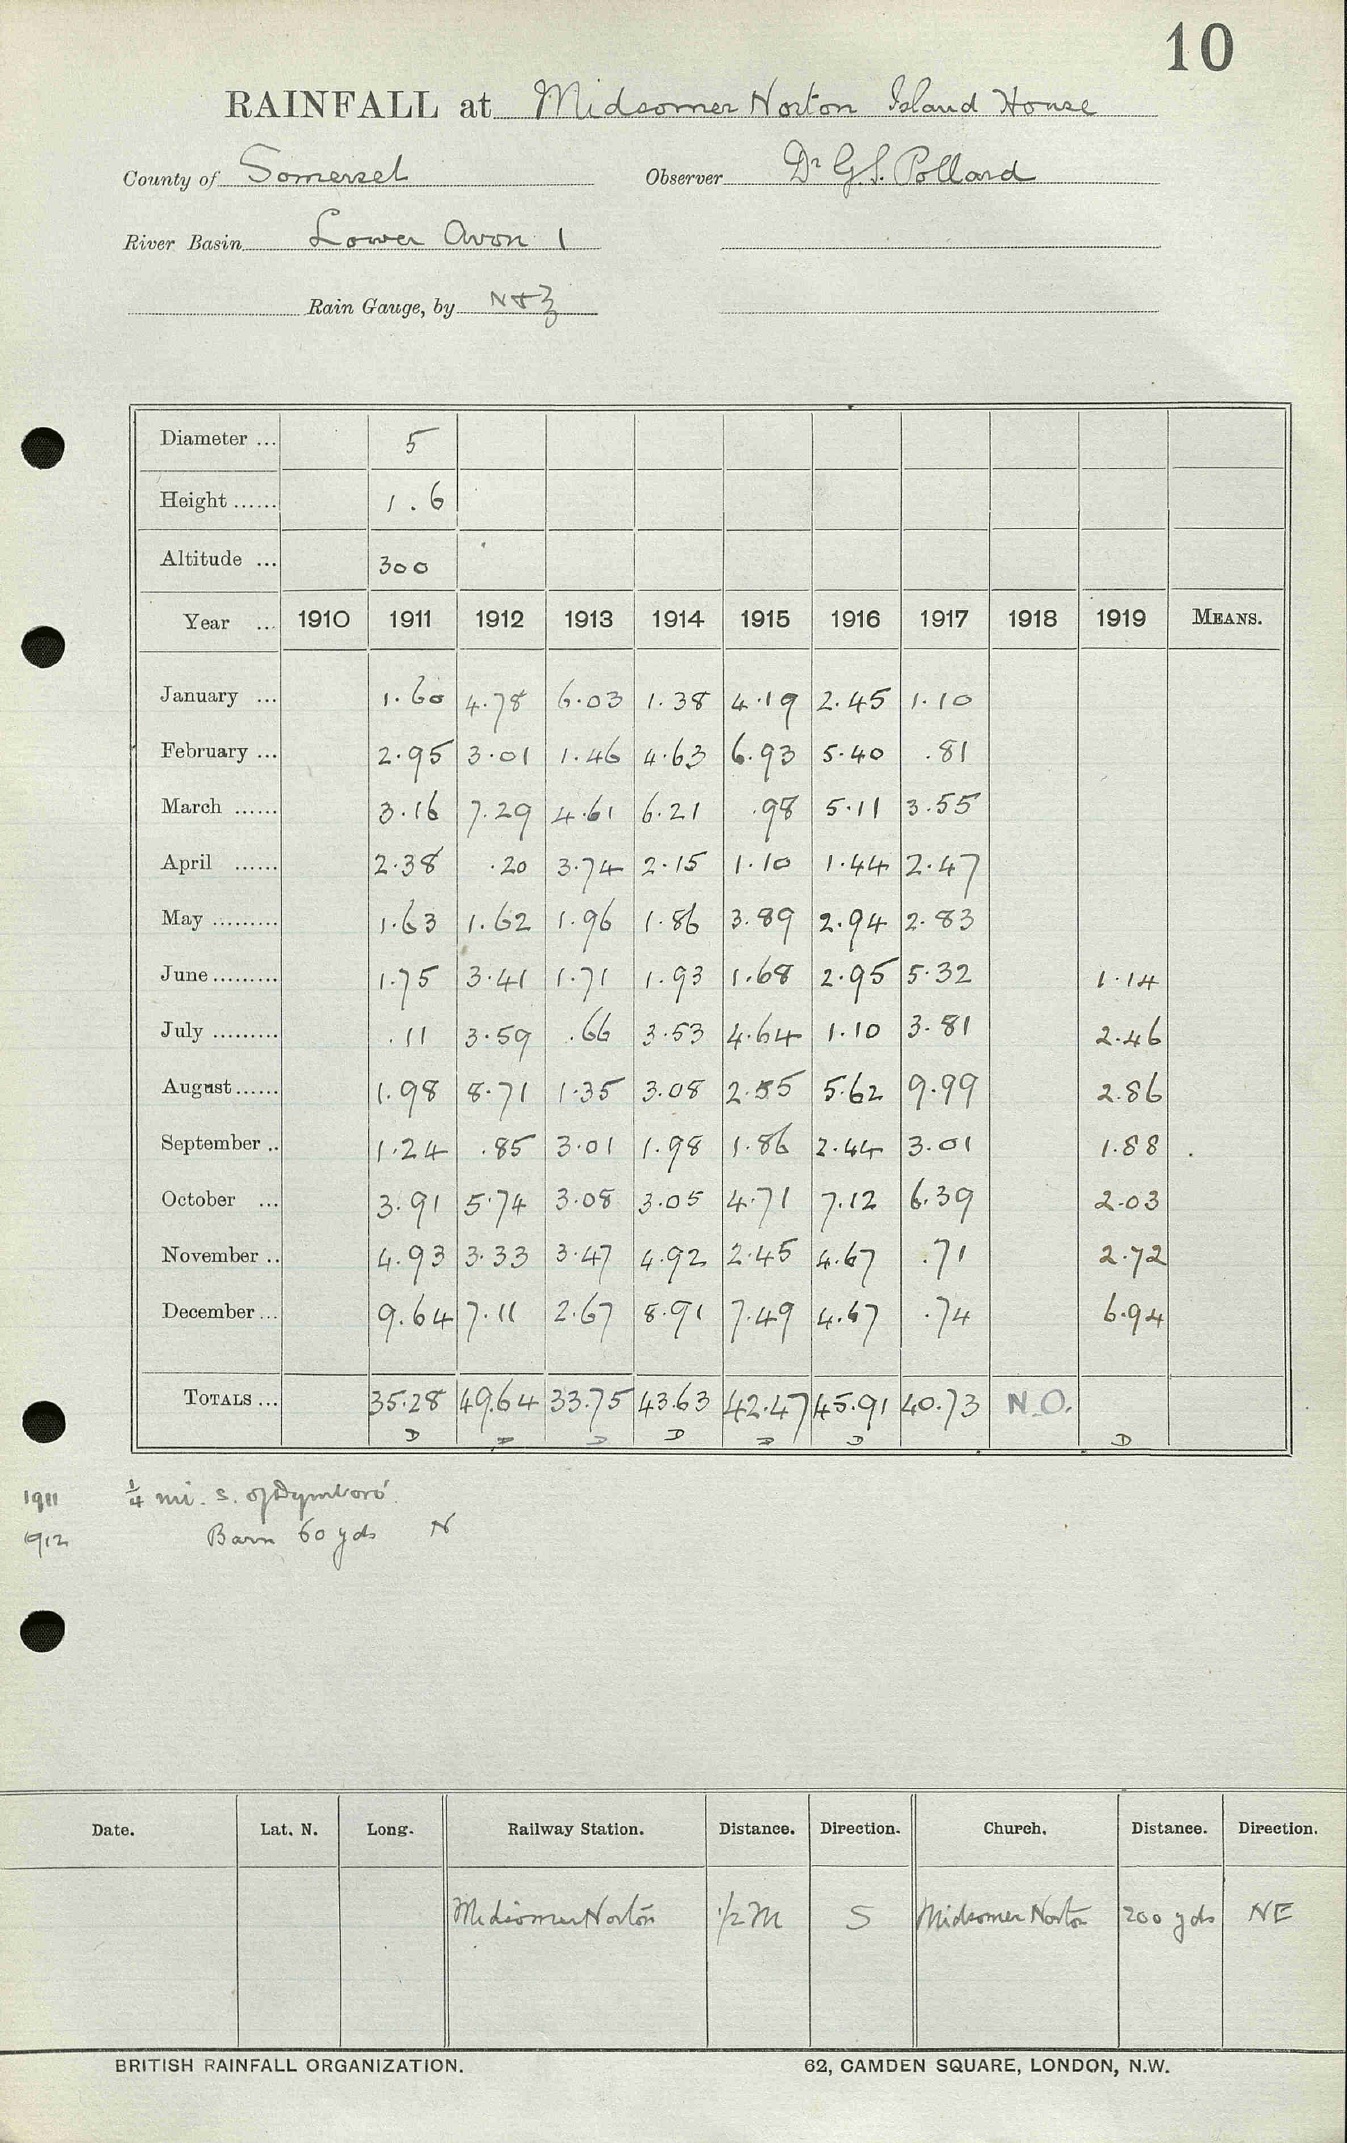 10
RAINFALL at Midsomer Norton Island House
County of Somerset Observer Dr G.S. Pollard
River Basin Lower Avon 1
Rain Gauge, by N & Z
Diameter ... 5
Height ...... 1.6
Altitude ... 300
Year ... 1910 1911 1912 1913 1914 1915 1916 1917 1918 1919 MEANS.
January ... 1.60 4.78 6.03 1.38 4.19 2.45 1.10
February ... 2.95 3.01 1.46 4.63 6.93 5.40 .81
March ...... 3.16 7.29 4.61 6.21 .98 5.11 3.55
April ...... 2.38 .20 3.74 2.15 1.10 1.44 2.47
May ......... 1.63 1.62 1.96 1.86 3.89 2.94 2.83
June ......... 1.75 3.41 1.71 1.93 1.68 2.95 5.32 1.14
July ......... .11 3.59 .66 3.53 4.64 1.10 3.81 2.46
August ...... 1.98 8.71 1.35 3.08 2.55 5.62 9.99 2.86
September .. 1.24 .85 3.01 1.98 1.86 2.44 3.01 1.88
October ... 3.91 5.74 3.08 3.05 4.71 7.12 6.39 2.03
November .. 4.93 3.33 3.47 4.92 2.45 4.67 .71 2.72
December ... 9.64 7.11 2.67 8.91 7.49 4.67 .74 6.94
TOTALS ... 35.28 49.64 33.75 43.63 42.47 45.91 40.73 N.O.
D D D D D D D
1911 1/4 mi. S. of Dymboro'.
1912 Barn 60 yds N
Date. Lat. N. Long. Railway Station. Distance. Direction. Church. Distance. Direction.
Midsomer Norton 1/2 M S Midsomer Norton 200 yds NE
BRITISH RAINFALL ORGANIZATION. 62, CAMDEN SQUARE, LONDON, N.W.